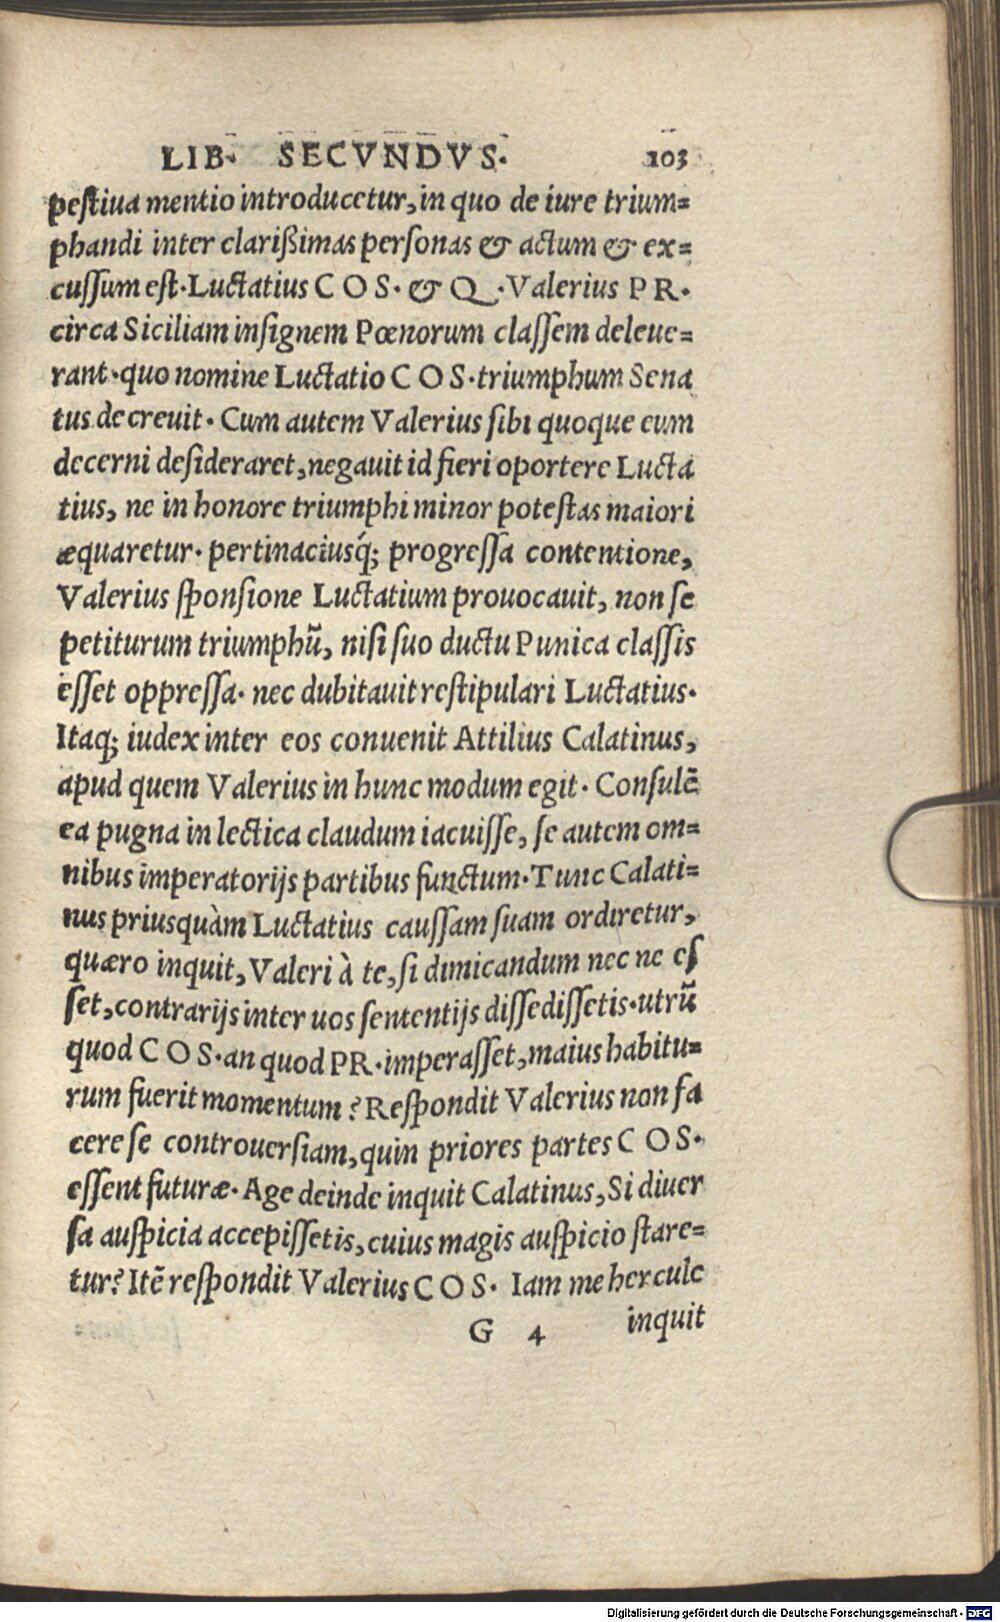 LIB. SECVNDVS. 103
pestiua mentio introducetur, in quo de iure trium=
phandi inter clarißimas personas & actum & ex=
cussum est. Luctatius COS. & Q. Valerius PR.
circa Siciliam insignem Pœnorum classem deleue=
rant. quo nomine Luctatio COS. triumphum Sena
tus decreuit. Cum autem Valerius sibi quoque eum
decerni desideraret, negauit id fieri oportere Lucta
tius, ne in honore triumphi minor potestas maiori
æquaretur. pertinaciusq́; progressa contentione,
Valerius sponsione Luctatium prouocauit, non se
petiturum triumphū, nisi suo ductu Punica classis
esset oppressa. nec dubitauit restipulari Luctatius.
Itaq; iudex inter eos conuenit Attilius Calatinus,
apud quem Valerius in hunc modum egit. Consulē
ea pugna in lectica claudum iacuisse, se autem om=
nibus imperatorijs partibus functum. Tunc Calati=
nus priusquàm Luctatius caussam suam ordiretur,
quæro inquit, Valeri à te, si dimicandum nec ne es
set, contrarijs inter uos sententijs dissedissetis. utrū
quod COS. an quod PR. imperasset, maius habitu=
rum fuerit momentum? Respondit Valerius non fa
cere se controuersiam, quin priores partes COS.
essent futuræ. Age deinde inquit Calatinus, Si diuer
sa auspicia accepissetis, cuius magis auspicio stare=
tur? Itē respondit Valerius COS. Iam me hercule
G 4 inquit
Digitalisierung gefördert durch die Deutsche Forschungsgemeinschaft - DFG